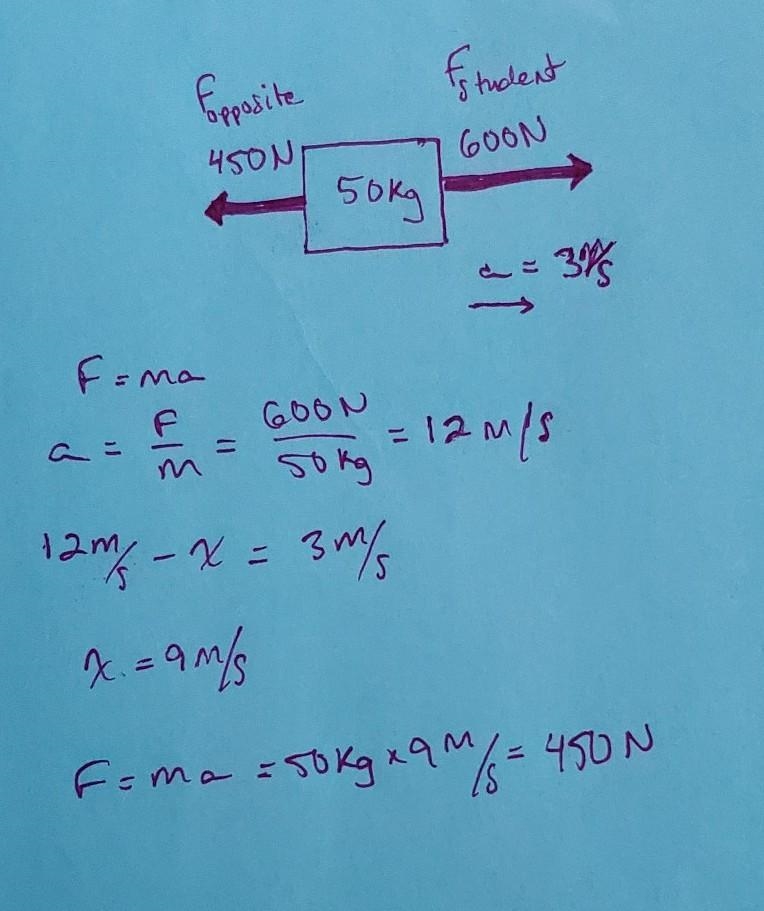 Fopposite
450N
Fstudent
600N
50kg
a = 3m/s
F = ma
a = F/m = 600N/50kg = 12 m/s
12m/s - x = 3m/s
x = 9m/s
F = ma = 50kg x 9m/s = 450N